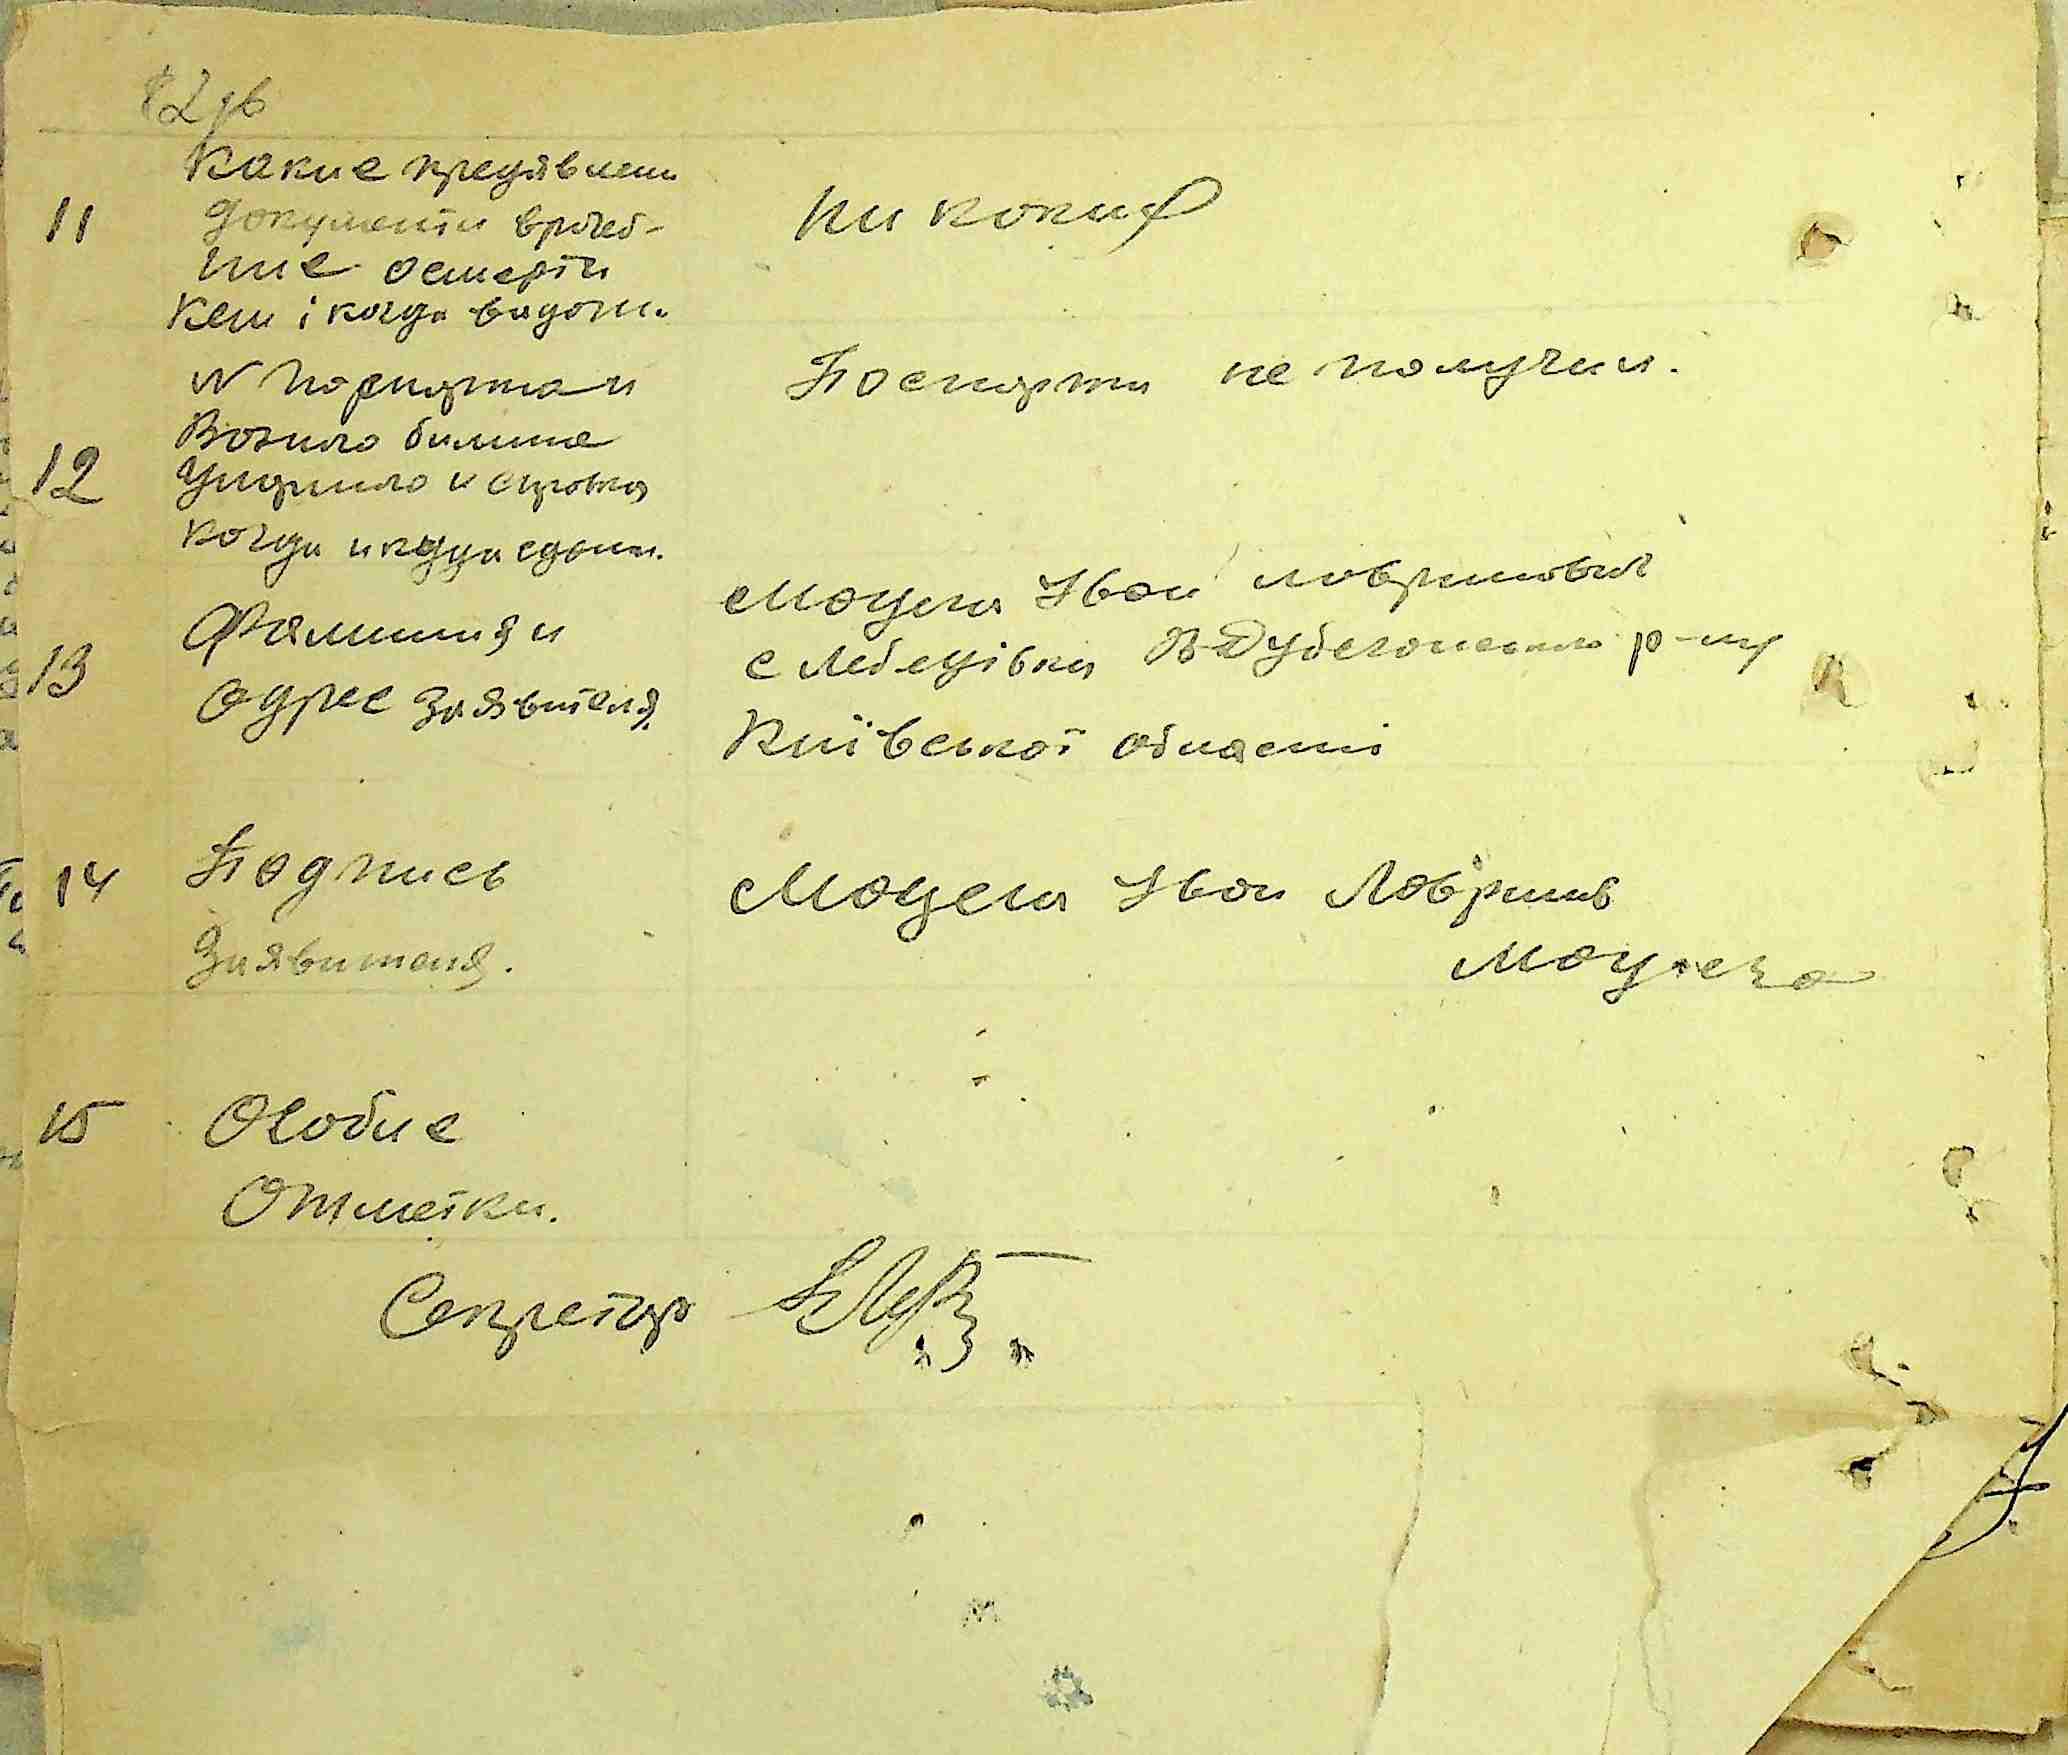 11 Какие предявлени
документи врачеб-
ние осмерти
Кем і когда видани.
Ни каких
N паспорта и
Воэнного билета
12
когда и куда сдани.
Паспорта не получил.
13 Фамилия и
Адрес заявителя.
Моцега Іван Лаврінович
с Лебедівка В-Дубечанского р-ну
Київської області
14 Подпись
Заявителя.
Моцега Іван Лаврінов
Моцега
15 Особие
Отметки.
Секретар